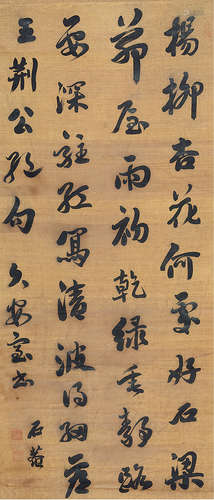 楊柳杏花何處好石梁
茆屋雨初乾綠垂靜路
要深駐紅寫清波得細看
王荆公絕句 久安室書
石菴